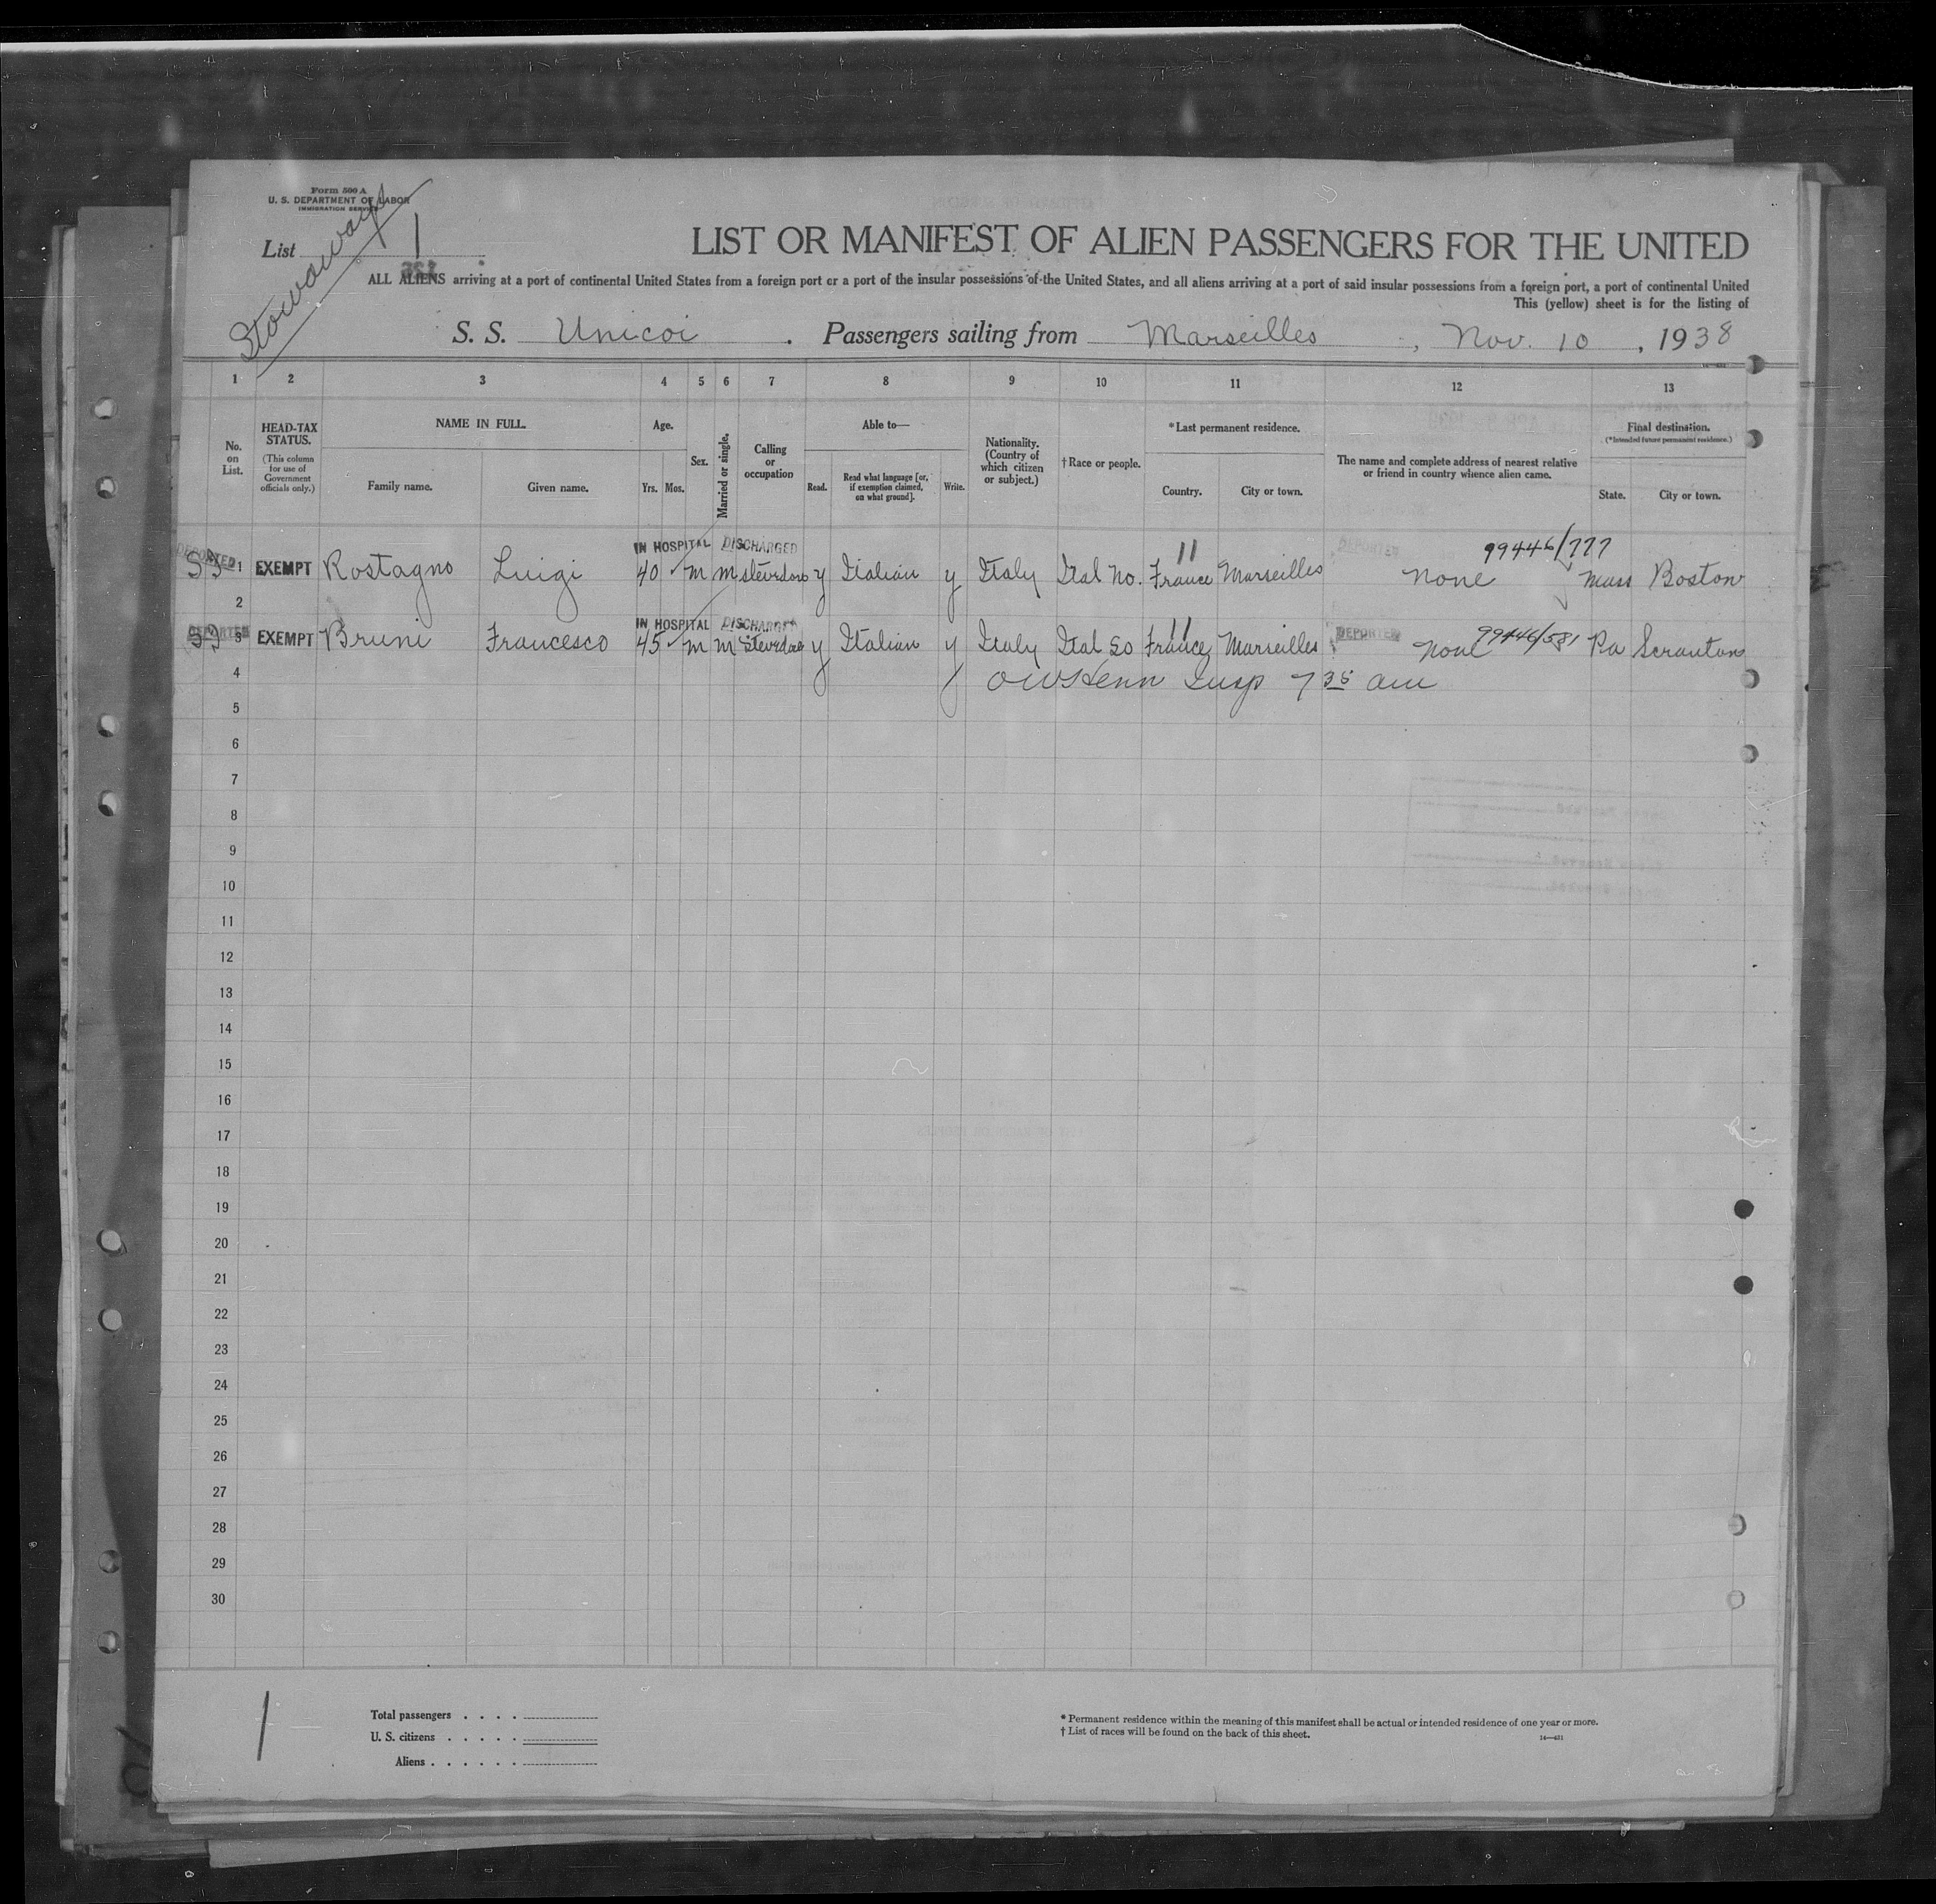 Form 500 A
U. S. DEPARTMENT OF LABOR
IMMIGRATION SERVICE
Stowaways
List 1
LIST OR MANIFEST OF ALIEN PASSENGERS FOR THE UNITED
ALL ALIENS arriving at a port of continental United States from a foreign port or a port of the insular possessions of the United States, and all aliens arriving at a port of said insular possessions from a foreign port, a port of continental United
This (yellow) sheet is for the listing of
S. S. Unicoi . Passengers sailing from Marseilles , Nov. 10 , 1938
1 2 3 4 5 6 7 8 9 10 11 12 13
No. on List. HEAD-TAX STATUS. (This column for use of Government officials only.) NAME IN FULL. Family name. Given name. Age. Yrs. Mos. Sex. Married or single. Calling or occupation Able to— Read. Read what language [or, if exemption claimed, on what ground]. Write. Nationality. (Country of which citizen or subject.) † Race or people. * Last permanent residence. Country. City or town. The name and complete address of nearest relative or friend in country whence alien came. Final destination. (* Intended future permanent residence.) State. City or town.
DEPORTED IN HOSPITAL DISCHARGED 11 DEPORTED 99446/777
SI 1 EXEMPT Rostagno Luigi 40 m m stevedore y Italian y Italy Ital No. France Marseilles none Mass Boston
2
DEPORTED IN HOSPITAL DISCHARGED 11 DEPORTED 99446/581
SI 3 EXEMPT Bruni Francesco 45 m m stevedore y Italian y Italy Ital So France Marseilles None Pa Scranton
4 Insp 7 35 am
5
6
7
8
9
10
11
12
13
14
15
16
17
18
19
20
21
22
23
24
25
26
27
28
29
30
1
Total passengers . . . .
U. S. citizens . . . . .
Aliens . . . . . .
* Permanent residence within the meaning of this manifest shall be actual or intended residence of one year or more.
† List of races will be found on the back of this sheet.